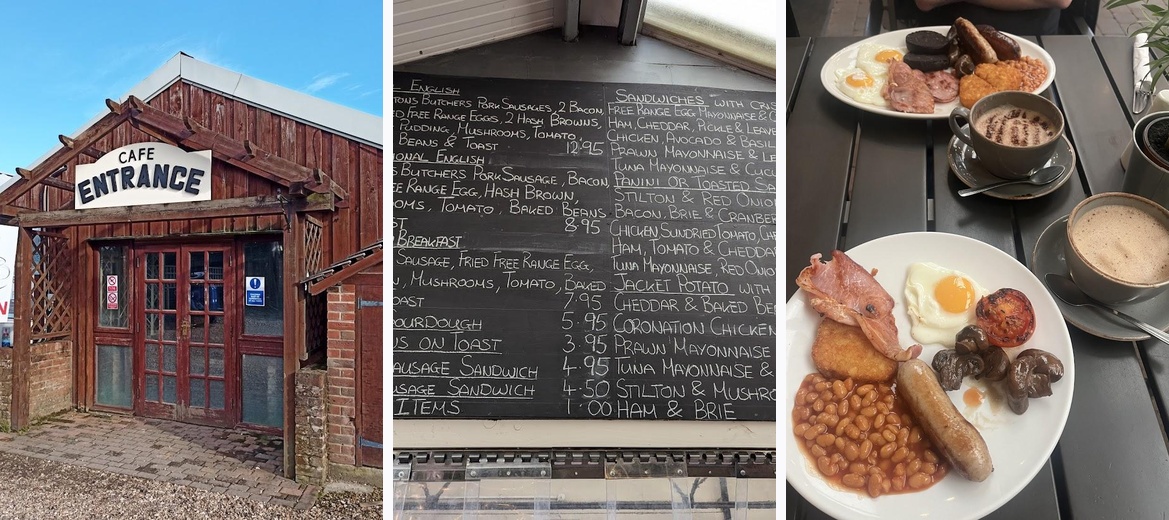 CAFE
ENTRANCE
ENGLISH
BUTCHERS PORK SAUSAGES, 2 BACON,
FREE RANGE EGGS, 2 HASH BROWNS,
PUDDING, MUSHROOMS, TOMATO,
BEANS & TOAST 12.95
ENGLISH
BUTCHERS PORK SAUSAGE, BACON,
RANGE EGG, HASH BROWN,
TOMATO, BAKED BEANS
8.95
BREAKFAST
SAUSAGE, FRIED FREE RANGE EGG,
MUSHROOMS, TOMATO, BAKED
7.95
5.95
ON TOAST 3.95
SANDWICH 4.95
SANDWICH 4.50
ITEMS 1.00
SANDWICHES WITH
FREE RANGE EGG MAYONNAISE &
HAM, CHEDDAR, PICKLE &
CHICKEN, AVOCADO & BASIL
PRAWN MAYONNAISE &
TUNA MAYONNAISE &
PANINI OR TOASTED
STILTON & RED
BACON, BRIE &
CHICKEN SUNDRIED TOMATO,
HAM, TOMATO & CHEDDAR
TUNA MAYONNAISE, RED
JACKET POTATO WITH
CHEDDAR & BAKED
CORONATION CHICKEN
PRAWN MAYONNAISE
TUNA MAYONNAISE &
STILTON &
HAM & BRIE